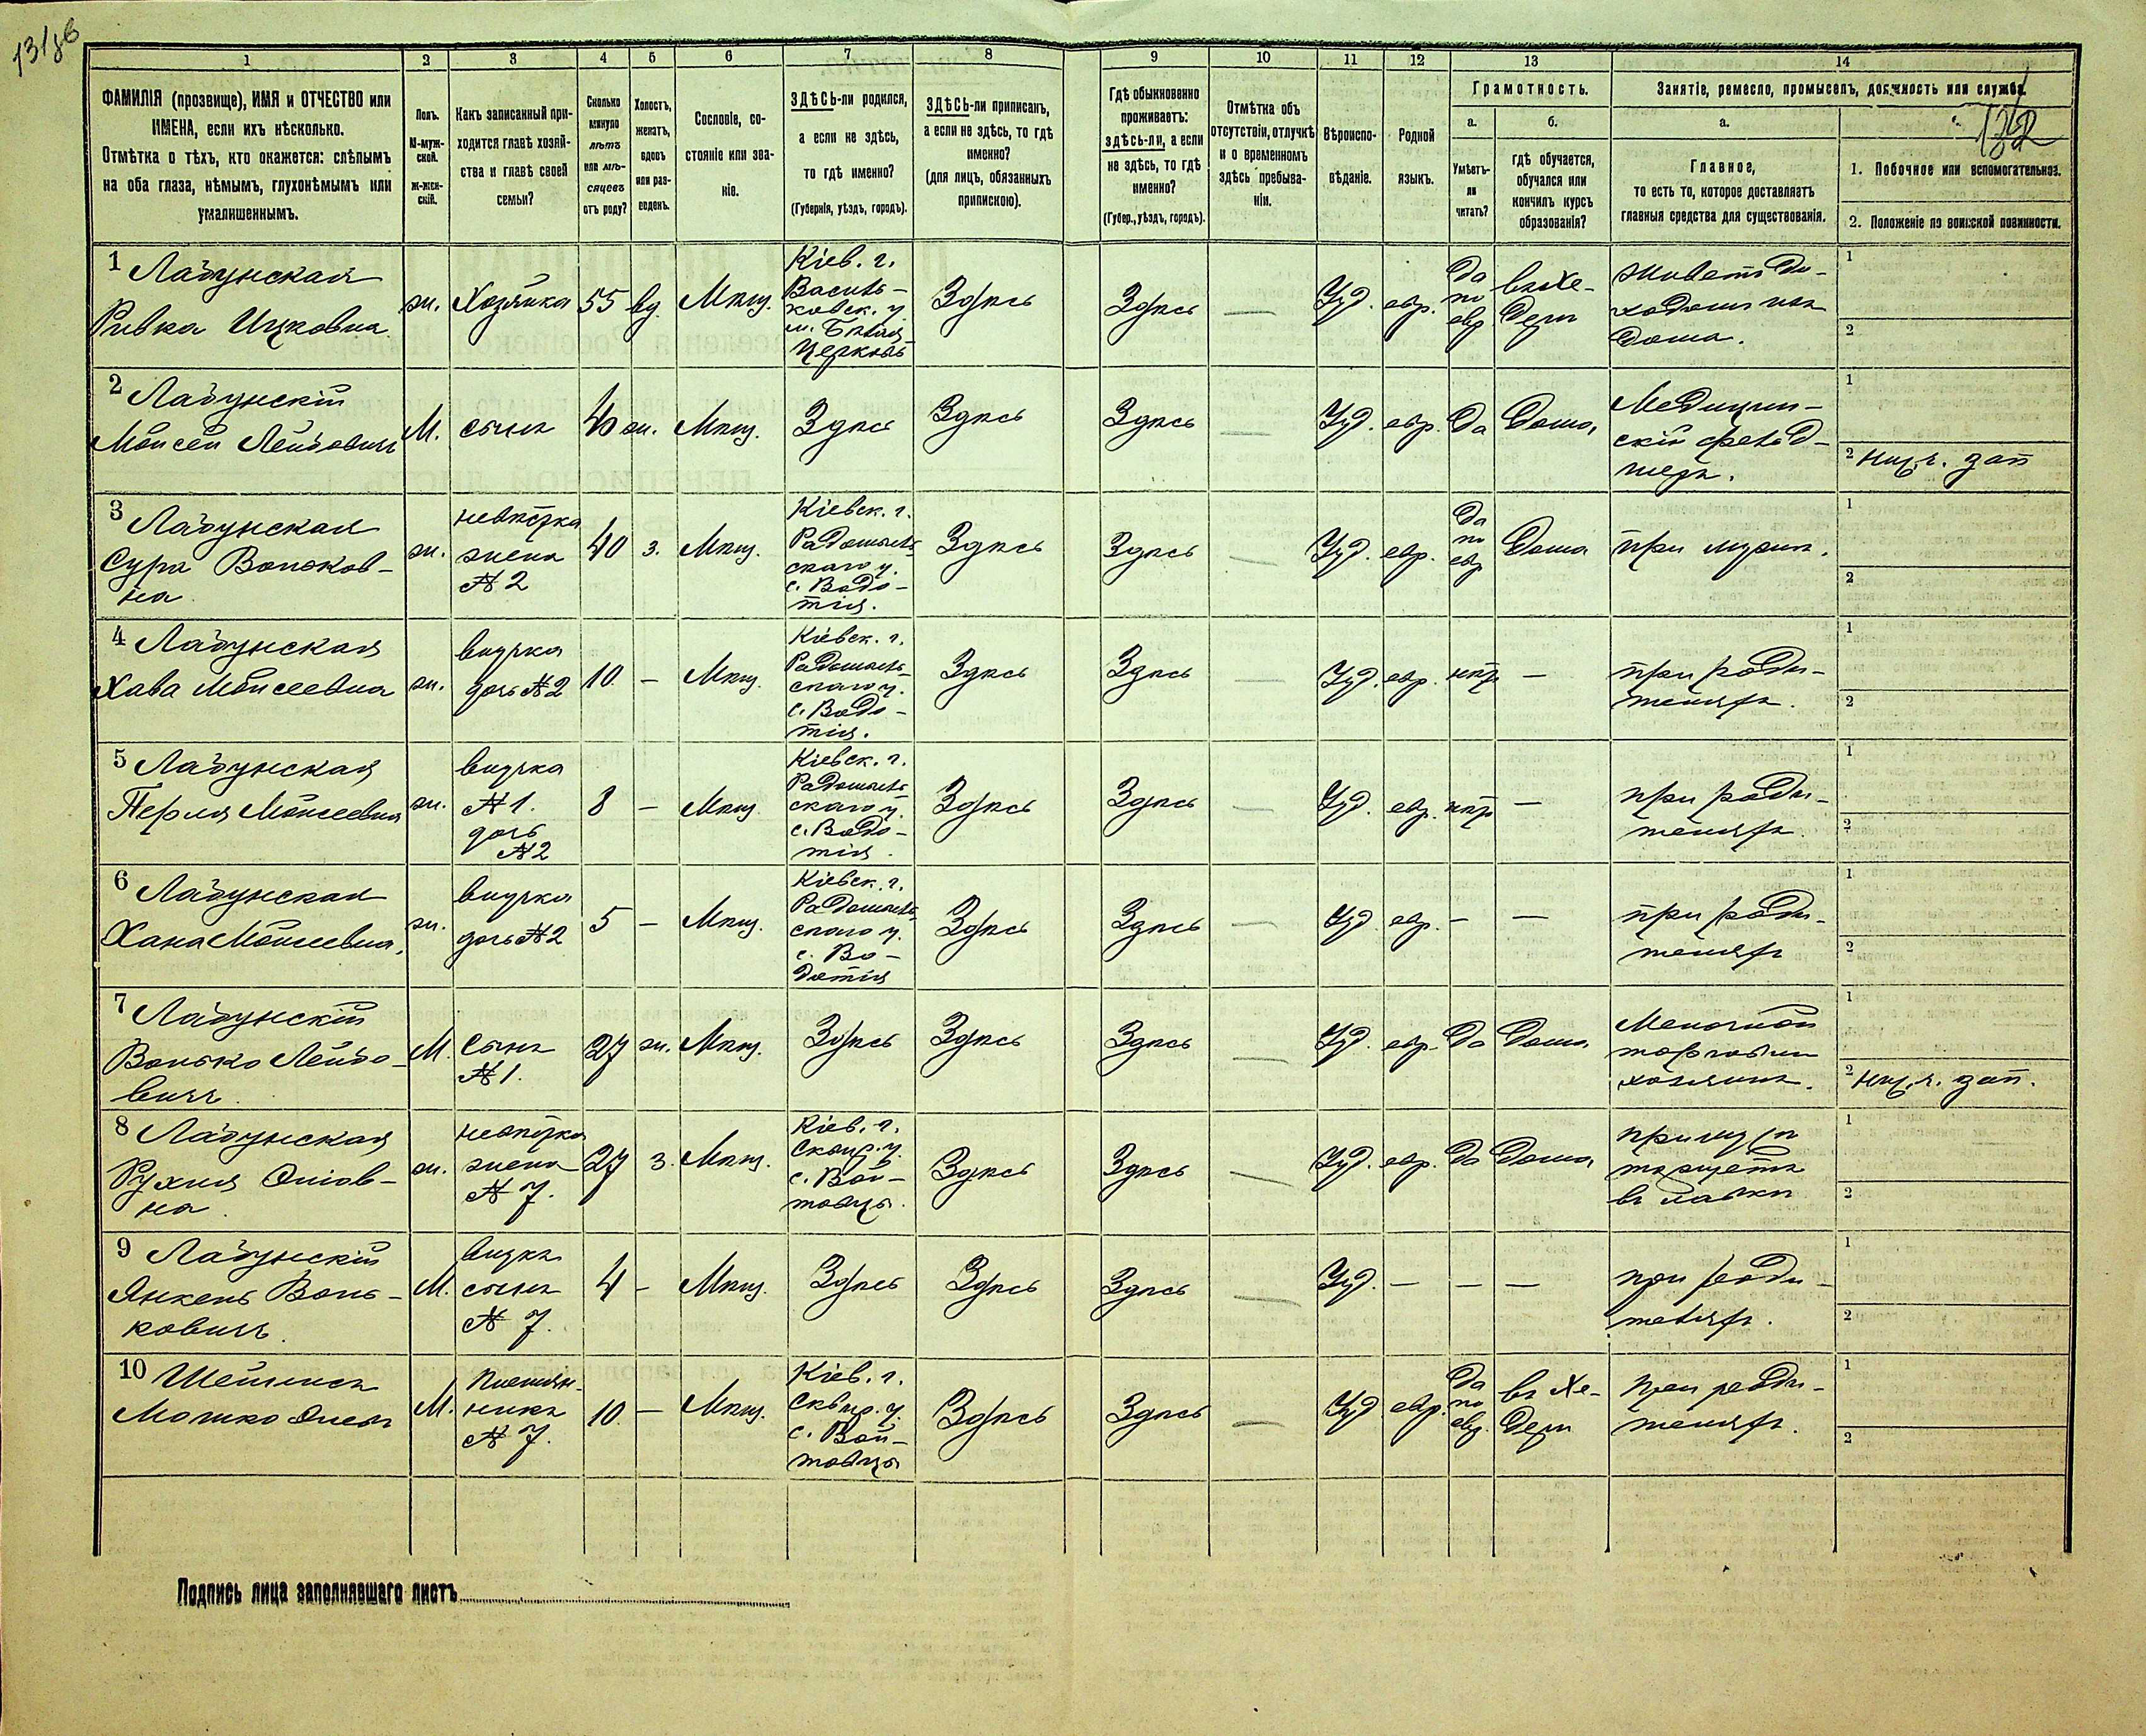 131 об
132
1
2
3
4
5
6
7
8
9
10
11
12
13
14
ФАМИЛІЯ (прозвище), ИМЯ и ОТЧЕСТВО или
ИМЕНА, если ихъ нѣсколько.
Отмѣтка о тѣхъ, кто окажется: слѣпымъ
на оба глаза, нѣмымъ, глухонѣмымъ или
умалишеннымъ.
Полъ.
М-муж-
ской.
ж-жен-
скій.
Какъ записанный при-
ходится главѣ хозяй-
ства и главѣ своей
семьи?
Сколько
минуло
лѣтъ
или мѣ-
сяцевъ
отъ роду?
Холостъ,
женатъ,
вдовъ
или раз-
веденъ.
Сословіе, со-
стояніе или зва-
ніе.
ЗДѢСЬ-ли родился,
а если не здѣсь,
то гдѣ именно?
(Губернія, уѣздъ, городъ).
ЗДѢСЬ-ли приписанъ,
а если не здѣсь, то гдѣ
именно?
(для лицъ, обязанныхъ
припискою).
Гдѣ обыкновенно
проживаетъ:
здѣсь-ли, а если
не здѣсь, то гдѣ
именно?
(Губер., уѣздъ, городъ).
Отмѣтка объ
отсутствіи, отлучкѣ
и о временномъ
здѣсь пребыва-
ніи.
Вѣроиспо-
вѣданіе.
Родной
языкъ.
Грамотность.
а.
Умѣетъ-
ли
читать?
б.
гдѣ обучается,
обучался или
кончилъ курсъ
образованія?
Занятіе, ремесло, промыселъ, должность или служба.
а.
Главное,
то есть то, которое доставляетъ
главныя средства для существованія.
1. Побочное или вспомогательное.
2. Положеніе по воинской повинности.
1 Лабунская
Ривка Ицковна
ж.
Хозяйка
55
вд.
Мѣщ.
Кіев. г.
Василь-
ковск. у.
м. Бѣлая
Церковь
Здѣсь
Здѣсь
—
Іуд.
евр.
да
по
евр
въ Хе-
дерѣ
Живетъ до-
ходомъ изъ
дома.
1
2
2 Лабунскій
Мойсей Лейбовичъ
М.
сынъ
40
ж.
Мѣщ.
Здѣсь
Здѣсь
Здѣсь
—
Іуд.
евр.
Да
Дома,
Медицин-
скій фельд-
шеръ.
1
2
3 Лабунская
Сура Вольков-
на
ж.
невѣстка
жена
№ 2
40
з.
Мѣщ.
Кіевск. г.
Радомысль-
скаго у.
с. Водо-
тія.
Здѣсь
Здѣсь
—
Іуд.
евр.
да
по
евр
Дома
при мужѣ.
1
2
4 Лабунская
Хава Мойсеевна
ж.
внучка
дочь № 2
10.
—
Мѣщ.
Кіевск. г.
Радомысль-
скаго у.
с. Водо-
тія.
Здѣсь
Здѣсь
—
Іуд.
евр.
нѣт
—
при роди-
теляхъ.
1
2
5 Лабунская
Перля Мойсеевна
ж.
внучка
№ 1.
дочь
№ 2
8
—
Мѣщ.
Кіевск. г.
Радомысль-
скаго у.
с. Водо-
тія.
Здѣсь
Здѣсь
—
Іуд.
евр.
нѣт
—
при роди-
теляхъ.
1
2
6 Лабунская
Хана Мойсеевна,
ж.
внучка
дочь № 2
5
—
Мѣщ.
Кіевск. г.
Радомысль-
скаго у.
с. Во-
дотія
Здѣсь
Здѣсь
—
Іуд.
евр.
—
—
при роди-
теляхъ
1
2
7 Лабунскій
Волько Лейбо-
вичъ.
М.
Сынъ
№ 1.
27
ж.
Мѣщ.
Здѣсь
Здѣсь
Здѣсь
—
Іуд.
евр.
Да
Дома
Мелочной
торговли
хозяинъ.
1
2
8 Лабунская
Рухля
на.
ж.
невѣстка
жена
№ 7.
27
з.
Мѣщ.
Кіев. г.
Сквир. у.
с. Вой-
товцы.
Здѣсь
Здѣсь
—
Іуд.
евр.
Да
Дома
при мужѣ
торгуетъ
въ лавкѣ
1
2
9 Лабунскій
Янкель Воль-
ковичъ.
М.
внукъ
сынъ
№ 7.
4
—
Мѣщ.
Здѣсь
Здѣсь
Здѣсь
—
Іуд.
—
—
—
при роди-
теляхъ.
1
2
10
Мошко
М.
племян-
никъ
№ 7.
10.
—
Мѣщ.
Кіев. г.
Сквир. у.
с. Вой-
товцы
Здѣсь
Здѣсь
—
Іуд.
евр.
да
по
евр.
въ Хе-
дерѣ
при роди-
теляхъ.
1
2
Подпись лица заполнявшаго листъ